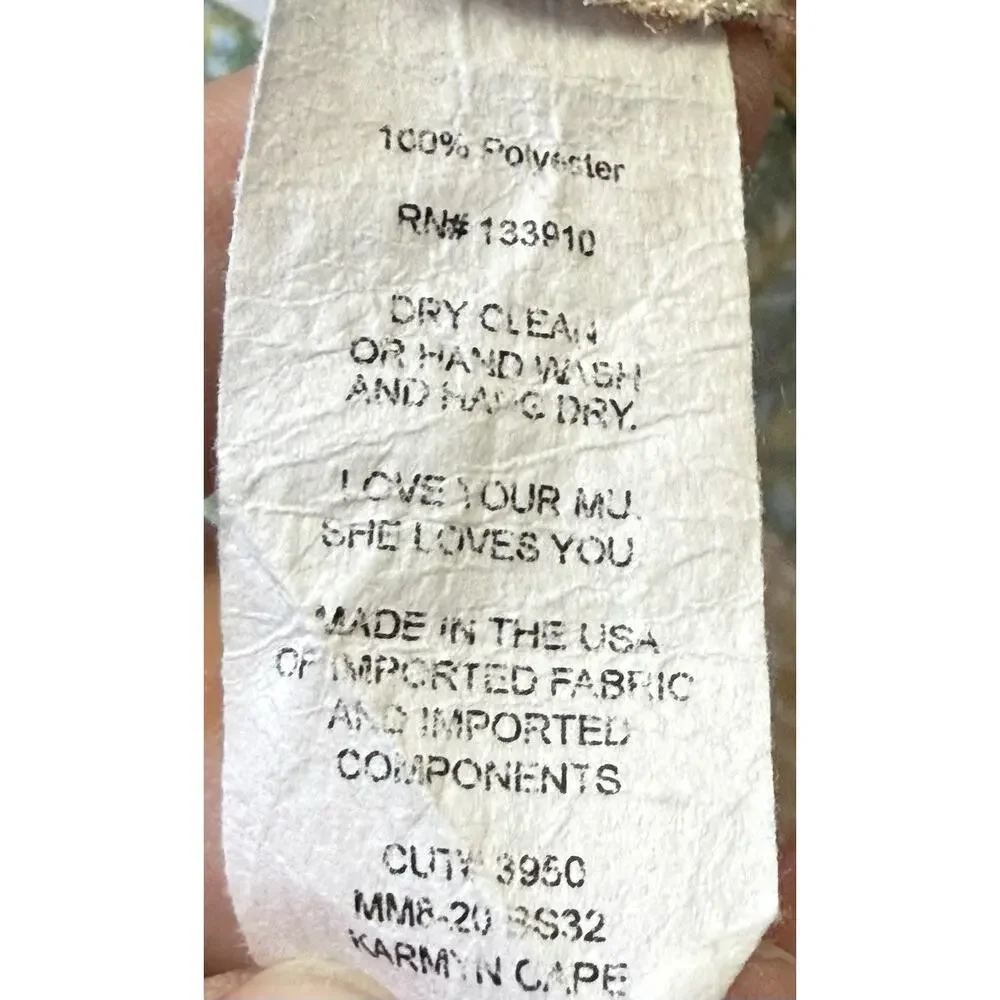 100% Polyester
RN# 133910
DRY CLEAN
OR HAND WASH
AND HANG DRY.
LOVE YOUR MU.
SHE LOVES YOU
MADE IN THE USA
OF IMPORTED FABRIC
AND IMPORTED
COMPONENTS
CUT# 3950
KARMYN CAPE